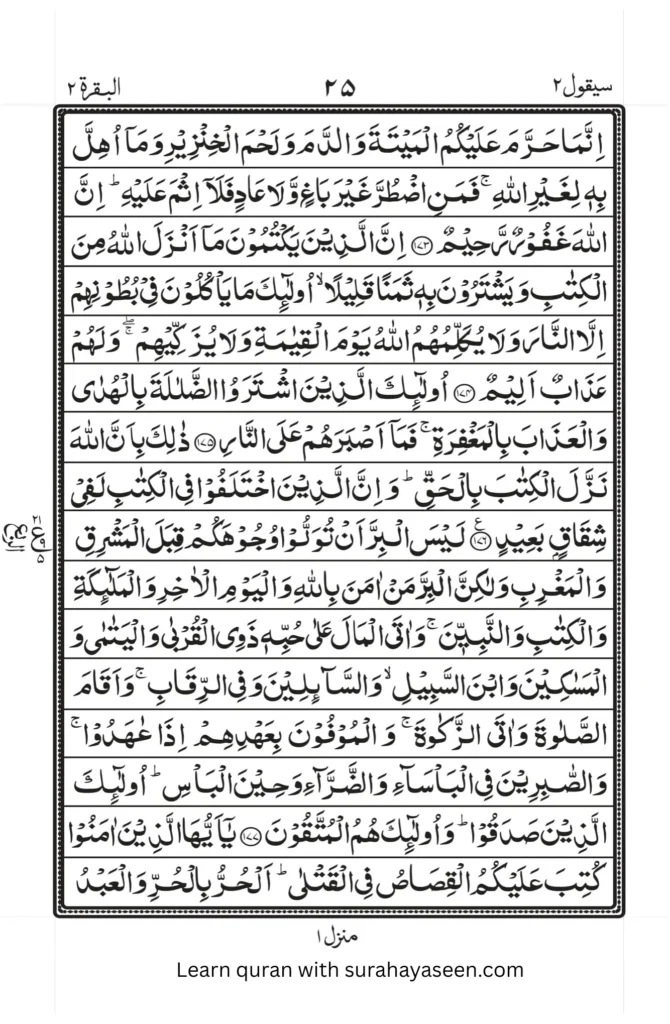 سيقول ۲ ۲۵ البقرة ۲
اِنَّمَا حَرَّمَ عَلَيۡكُمُ الۡمَيۡتَةَ وَالدَّمَ وَلَحۡمَ الۡخِنۡزِيۡرِ وَمَآ اُهِلَّ
بِهٖ لِغَيۡرِ اللّٰهِ ۚ فَمَنِ اضۡطُرَّ غَيۡرَ بَاغٍ وَّلَا عَادٍ فَلَآ اِثۡمَ عَلَيۡهِ ؕ اِنَّ
اللّٰهَ غَفُوۡرٌ رَّحِيۡمٌ ﴿۱۷۳﴾ اِنَّ الَّذِيۡنَ يَكۡتُمُوۡنَ مَآ اَنۡزَلَ اللّٰهُ مِنَ
الۡكِتٰبِ وَيَشۡتَرُوۡنَ بِهٖ ثَمَنًا قَلِيۡلًا ۙ اُولٰٓٮِٕكَ مَا يَاۡكُلُوۡنَ فِىۡ بُطُوۡنِهِمۡ
اِلَّا النَّارَ وَلَا يُکَلِّمُهُمُ اللّٰهُ يَوۡمَ الۡقِيٰمَةِ وَلَا يُزَکِّيۡهِمۡ ۖۚ وَلَهُمۡ
عَذَابٌ اَلِيۡمٌ ﴿۱۷۴﴾ اُولٰٓٮِٕكَ الَّذِيۡنَ اشۡتَرَوُا الضَّلٰلَةَ بِالۡهُدٰى
وَالۡعَذَابَ بِالۡمَغۡفِرَةِ ۚ فَمَآ اَصۡبَرَهُمۡ عَلَى النَّارِ ﴿۱۷۵﴾ ذٰلِكَ بِاَنَّ اللّٰهَ
نَزَّلَ الۡكِتٰبَ بِالۡحَقِّ ؕ وَاِنَّ الَّذِيۡنَ اخۡتَلَفُوۡا فِى الۡكِتٰبِ لَفِىۡ
شِقَاقٍۢ بَعِيۡدٍ ﴿۱۷۶﴾ لَيۡسَ الۡبِرَّ اَنۡ تُوَلُّوۡا وُجُوۡهَكُمۡ قِبَلَ الۡمَشۡرِقِ
وَالۡمَغۡرِبِ وَلٰـكِنَّ الۡبِرَّ مَنۡ اٰمَنَ بِاللّٰهِ وَالۡيَوۡمِ الۡاٰخِرِ وَالۡمَلٰٓٮِٕکَةِ
وَالۡكِتٰبِ وَالنَّبِيّٖنَ ۚ وَاٰتَى الۡمَالَ عَلٰى حُبِّهٖ ذَوِى الۡقُرۡبٰى وَالۡيَتٰمٰى وَ
الۡمَسٰكِيۡنَ وَابۡنَ السَّبِيۡلِ ۙ وَالسَّآٮِٕلِيۡنَ وَفِى الرِّقَابِ ۚ وَاَقَامَ
الصَّلٰوةَ وَاٰتَى الزَّکٰوةَ ۚ وَالۡمُوۡفُوۡنَ بِعَهۡدِهِمۡ اِذَا عٰهَدُوۡا ۚ
وَالصّٰبِرِيۡنَ فِى الۡبَاۡسَآءِ وَالضَّرَّآءِ وَحِيۡنَ الۡبَاۡسِ ؕ اُولٰٓٮِٕكَ
الَّذِيۡنَ صَدَقُوۡا ؕ وَاُولٰٓٮِٕكَ هُمُ الۡمُتَّقُوۡنَ ﴿۱۷۷﴾ يٰٓاَيُّهَا الَّذِيۡنَ اٰمَنُوۡا
كُتِبَ عَلَيۡكُمُ الۡقِصَاصُ فِى الۡقَتۡلٰى ؕ اَلۡحُرُّ بِالۡحُرِّ وَالۡعَبۡدُ
منزل ۱
Learn quran with surahayaseen.com